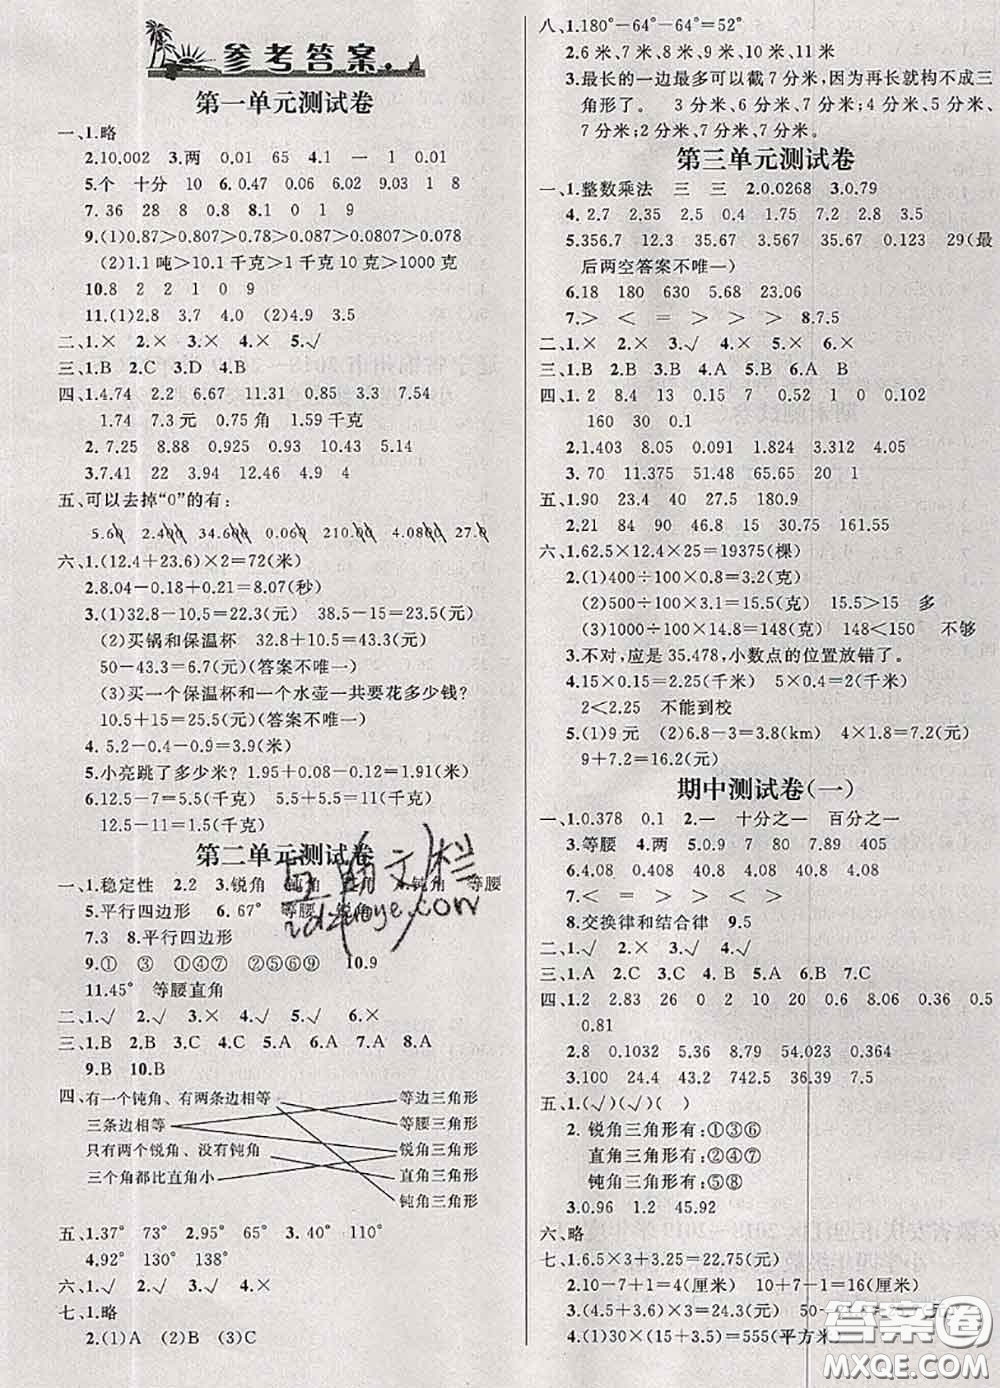 参考答案
第一单元测试卷
一、1.略
2.10,002 3.两 0.01 65 4.1 一 1 0.01
5.个 十分 10 6.0.47 0.06 6.02 9.03 1 8
7. 36 28 8 0.8 8.1 0 1 9
9.(1)0.87>0.807>0.78>0.087>0.0807>0.078
(2)1.1吨>10.1千克>1千克10克>1000克
10.8 2 2 1 0 9
11.(1)2.8 3.7 4.0 (2)4.9 3.5
二、1.× 2.× 3.× 4.× 5.√
三、1.B 2.C 3.D 4.B
四、1.4.74 2.2 6.67 11.31 0.85 3.3 7.54
1.74 7.3元 0.75角 1.59千克
2.7.25 8.88 0.925 0.93 12.51 9.1
3.7.41 22 3.94 12.46 4.9 4
五、可以去掉“0”的有:
5.60 2.400 34.600 0.060 210.00 4.0800 27.0
六、1.(12.4+23.6)×2=72(米)
2.8.04-0.18+0.21=8.07(秒)
3.(1)32.8-10.5=22.3(元) 38.5-15=23.5(元)
(2)买锅和保温杯 32.8+10.5=43.3(元)
50-43.3=6.7(元)(答案不唯一)
(3)买一个保温杯和一个水壶一共要花多少钱?
10.5+15=25.5(元)(答案不唯一)
4. 5.2-0.4-0.9=3.9(米)
5.小亮跳了多少米? 1.95+0.08-0.12=1.91(米)
6.12.5-7=5.5(千克) 5.5+5.5=11(千克)
12.5-11=1.5(千克)
第二单元测试卷
一、1.稳定性 2.2 3.锐角 钝角 4.锐角 等腰
5.平行四边形 6.67° 等腰 锐角
7.3 8.平行四边形
9.① ③ ①④⑦ ②⑤⑥⑨ 10.9
11.45° 等腰直角
二、1.√ 2.√ 3.× 4.√ 5.√ 6.×
三、1.B 2.B 3.C 4.C 5.A 6.A 7.A 8.A
9.B 10.B
四、有一个钝角、有两条边相等 等边三角形
三条边相等 等腰三角形
只有两个锐角、没有钝角 锐角三角形
三个角都比直角小 直角三角形
钝角三角形
五、1.37° 73° 2.95° 65° 3.40° 110°
4.92° 130° 138°
六、1.√ 2.√ 3.× 4.×
七、1.略
2.(1)A (2)B (3)C
八、1.180°-64°-64°=52°
2.6米,7米,8米,9米,10米,11米
3.最长的一边最多可以截7分米,因为再长就构不成三
角形了。 3分米,6分米,7分米;4分米,5分米,
7分米;2分米,7分米,7分米。
第三单元测试卷
一、1.整数乘法 三 三 2.0.0268 3.0.79
4. 2.7 2.35 2.5 0.4 1.35 2.8 3.5
5.356.7 12.3 35.67 3.567 35.67 0.123 29(最
后两空答案不唯一)
6.18 180 630 5.68 23.06
7.> < = > > > 8.7.5
二、1.× 2.× 3.× 4.× 5.√ 6.×
三、1.B 2.B 3.B 4.A 5.B 6.A B
四、1.2 8.4 13 0.15 7 0.52 1 0 0.102
160 30 0.1
2.1.403 8.05 0.091 1.824 3.312 4.05
3. 70 11.375 51.48 65.65 20 1
五、1.90 23.4 40 27.5 180.9
2.21 84 90 46.8 150.15 30 161.55
六、1.62.5×12.4×25=19375(棵)
2.(1)400÷100×0.8=3.2(克)
(2)500÷100×3.1=15.5(克) 15.5>15 多
(3)1000÷100×14.8=148(克) 148<150 不够
3.不对,应是35.478,小数点的位置放错了。
4.15×0.15=2.25(千米) 5×0.4=2(千米)
2<2.25 不能到校
5.(1)9元 (2)6.8-3=3.8(km) 4×1.8=7.2(元)
9+7.2=16.2(元)
期中测试卷(一)
一、1.0.378 0.1 2.一 十分之一 百分之一
3.等腰 4.两 5.0.9 7 80 789 4.905
6.4.08 0.408 40.8
7.< = > > > <
8.交换律和结合律 9.5
二、1.√ 2.× 3.× 4.√ 5.√
三、1.A 2.C 3.C 4.B 5.B 6.B 7.C
四、1.2 2.83 26 0 2 10 0.6 8.06 0.36 0.5
0.81
2.8 0.1032 5.36 8.79 54.02 0.364
3.100 24.4 432 742.5 36.39 10
五、1.(√)(√)( )
2. 锐角三角形有:①③⑥
直角三角形有:②④⑦
钝角三角形有:⑤⑧
3.0.96 1.2 45.92
六、略
七、1.6.5×3+3.25=22.75(元)
2.10-7+1=4(厘米) 10+7-1=16(厘米)
3.(4.5+3.6)×3=24.3(元)
4.(1)30×(15+3.5)=555(平方米)
答案圈
MXQE.COM